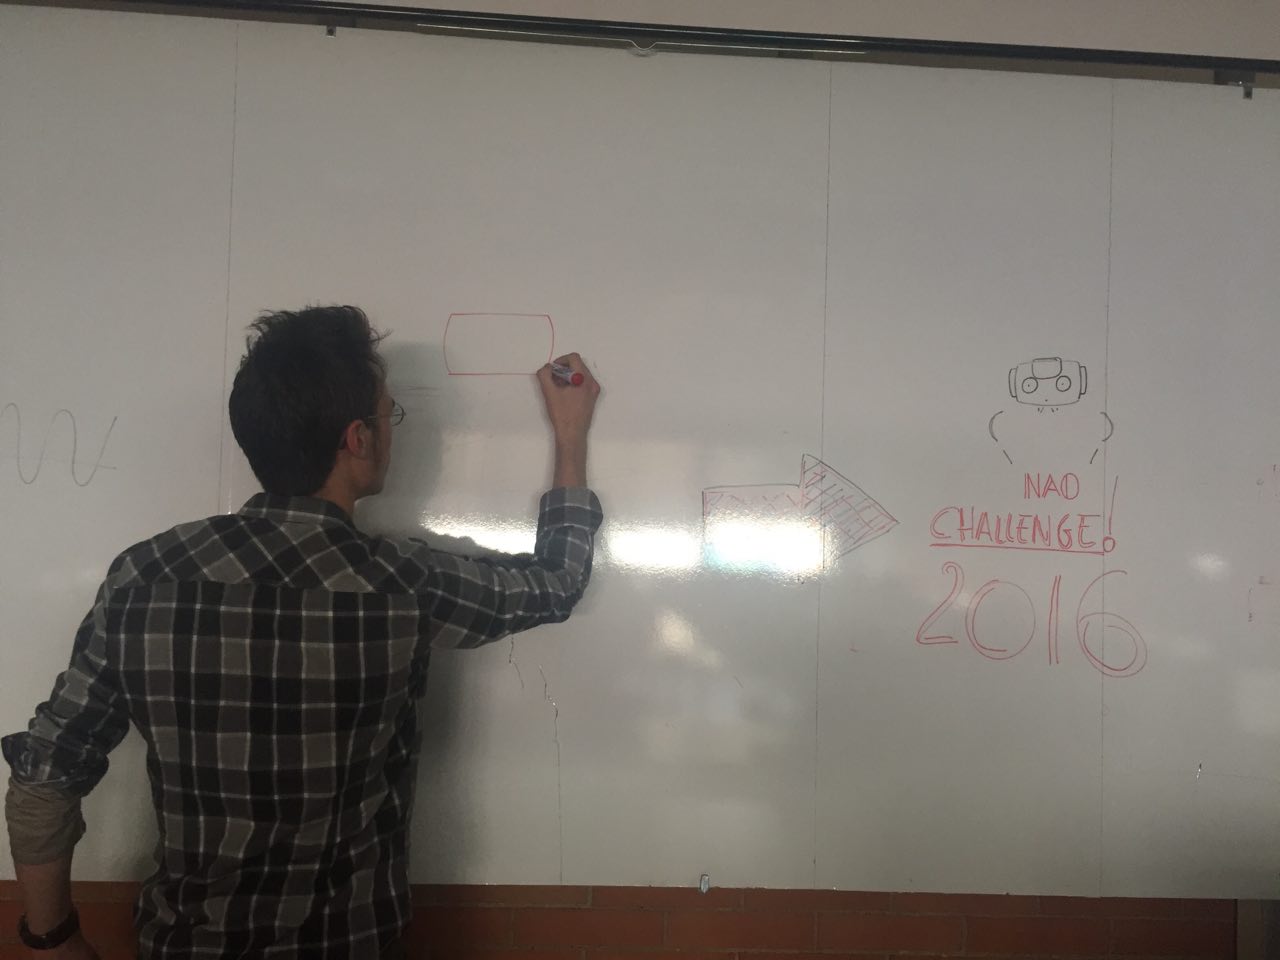 NAO
CHALLENGE!
2016